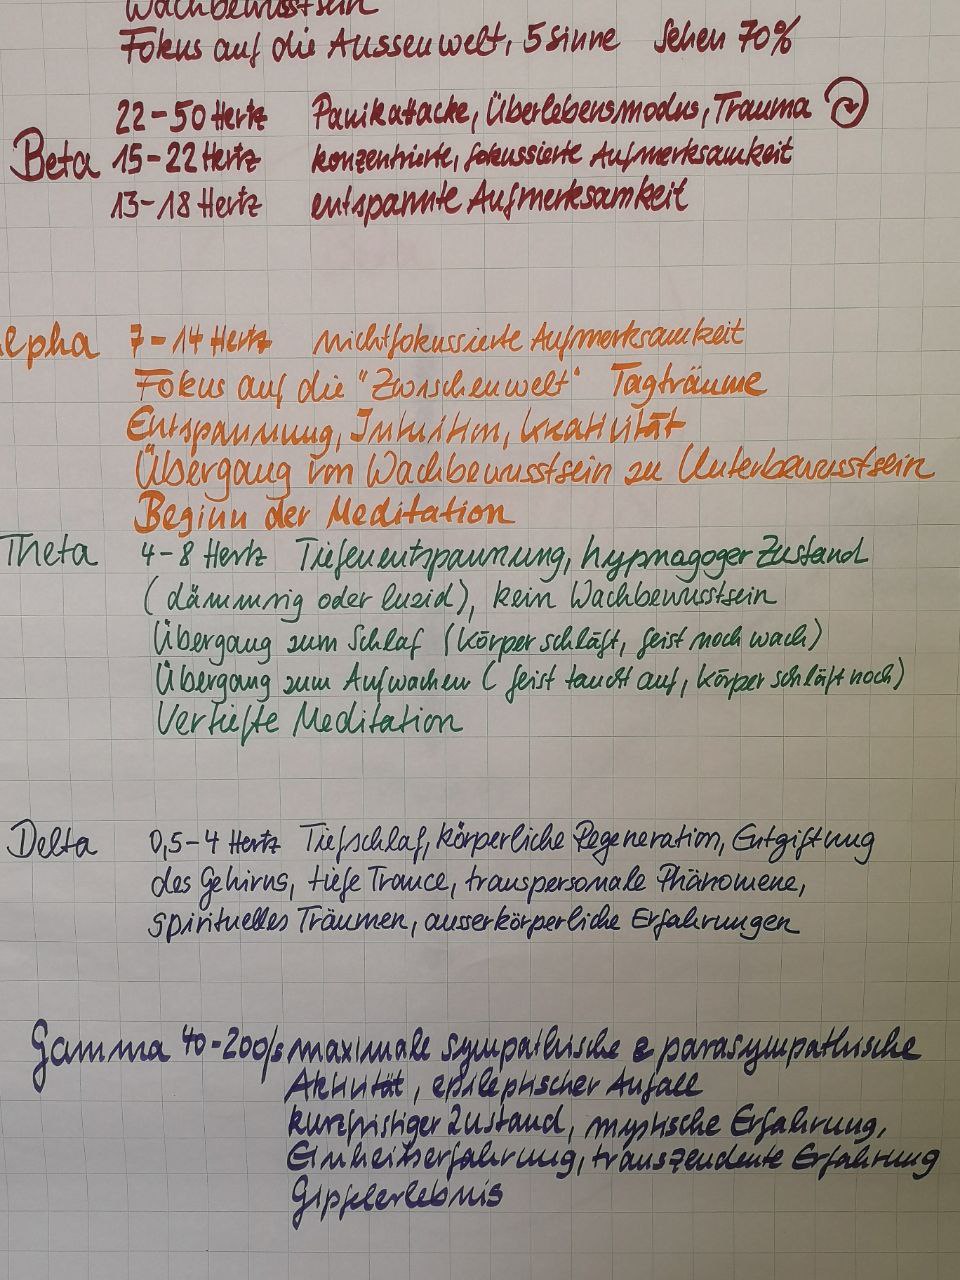 Wachbewusstsein
Fokus auf die Aussenwelt, 5 Sinne Sehen 70%
22-50 Hertz Panikattacke, Überlebensmodus, Trauma
Beta 15-22 Hertz konzentrierte, fokussierte Aufmerksamkeit
13-18 Hertz entspannte Aufmerksamkeit
lpha 7-14 Hertz nichtfokussierte Aufmerksamkeit
Fokus auf die "Zwischenwelt" Tagträume
Entspannung, Intuition, Kreativität
Übergang von Wachbewusstsein zu Unterbewusstsein
Beginn der Meditation
Theta 4-8 Hertz Tiefenentspannung, hypnagoger Zustand
(dämmrig oder luzid), kein Wachbewusstsein
Übergang zum Schlaf (Körper schläft, Geist noch wach)
Übergang zum Aufwachen (Geist taucht auf, Körper schläft noch)
Vertiefte Meditation
Delta 0,5-4 Hertz Tiefschlaf, körperliche Regeneration, Entgiftung
des Gehirns, tiefe Trance, transpersonale Phänomene,
spirituelles Träumen, ausserkörperliche Erfahrungen
Gamma 40-200/s maximale sympathische & parasympathische
Aktivität, epileptischer Anfall
kurzfristiger Zustand, mystische Erfahrung,
Einheitserfahrung, transzendente Erfahrung
Gipfelerlebnis